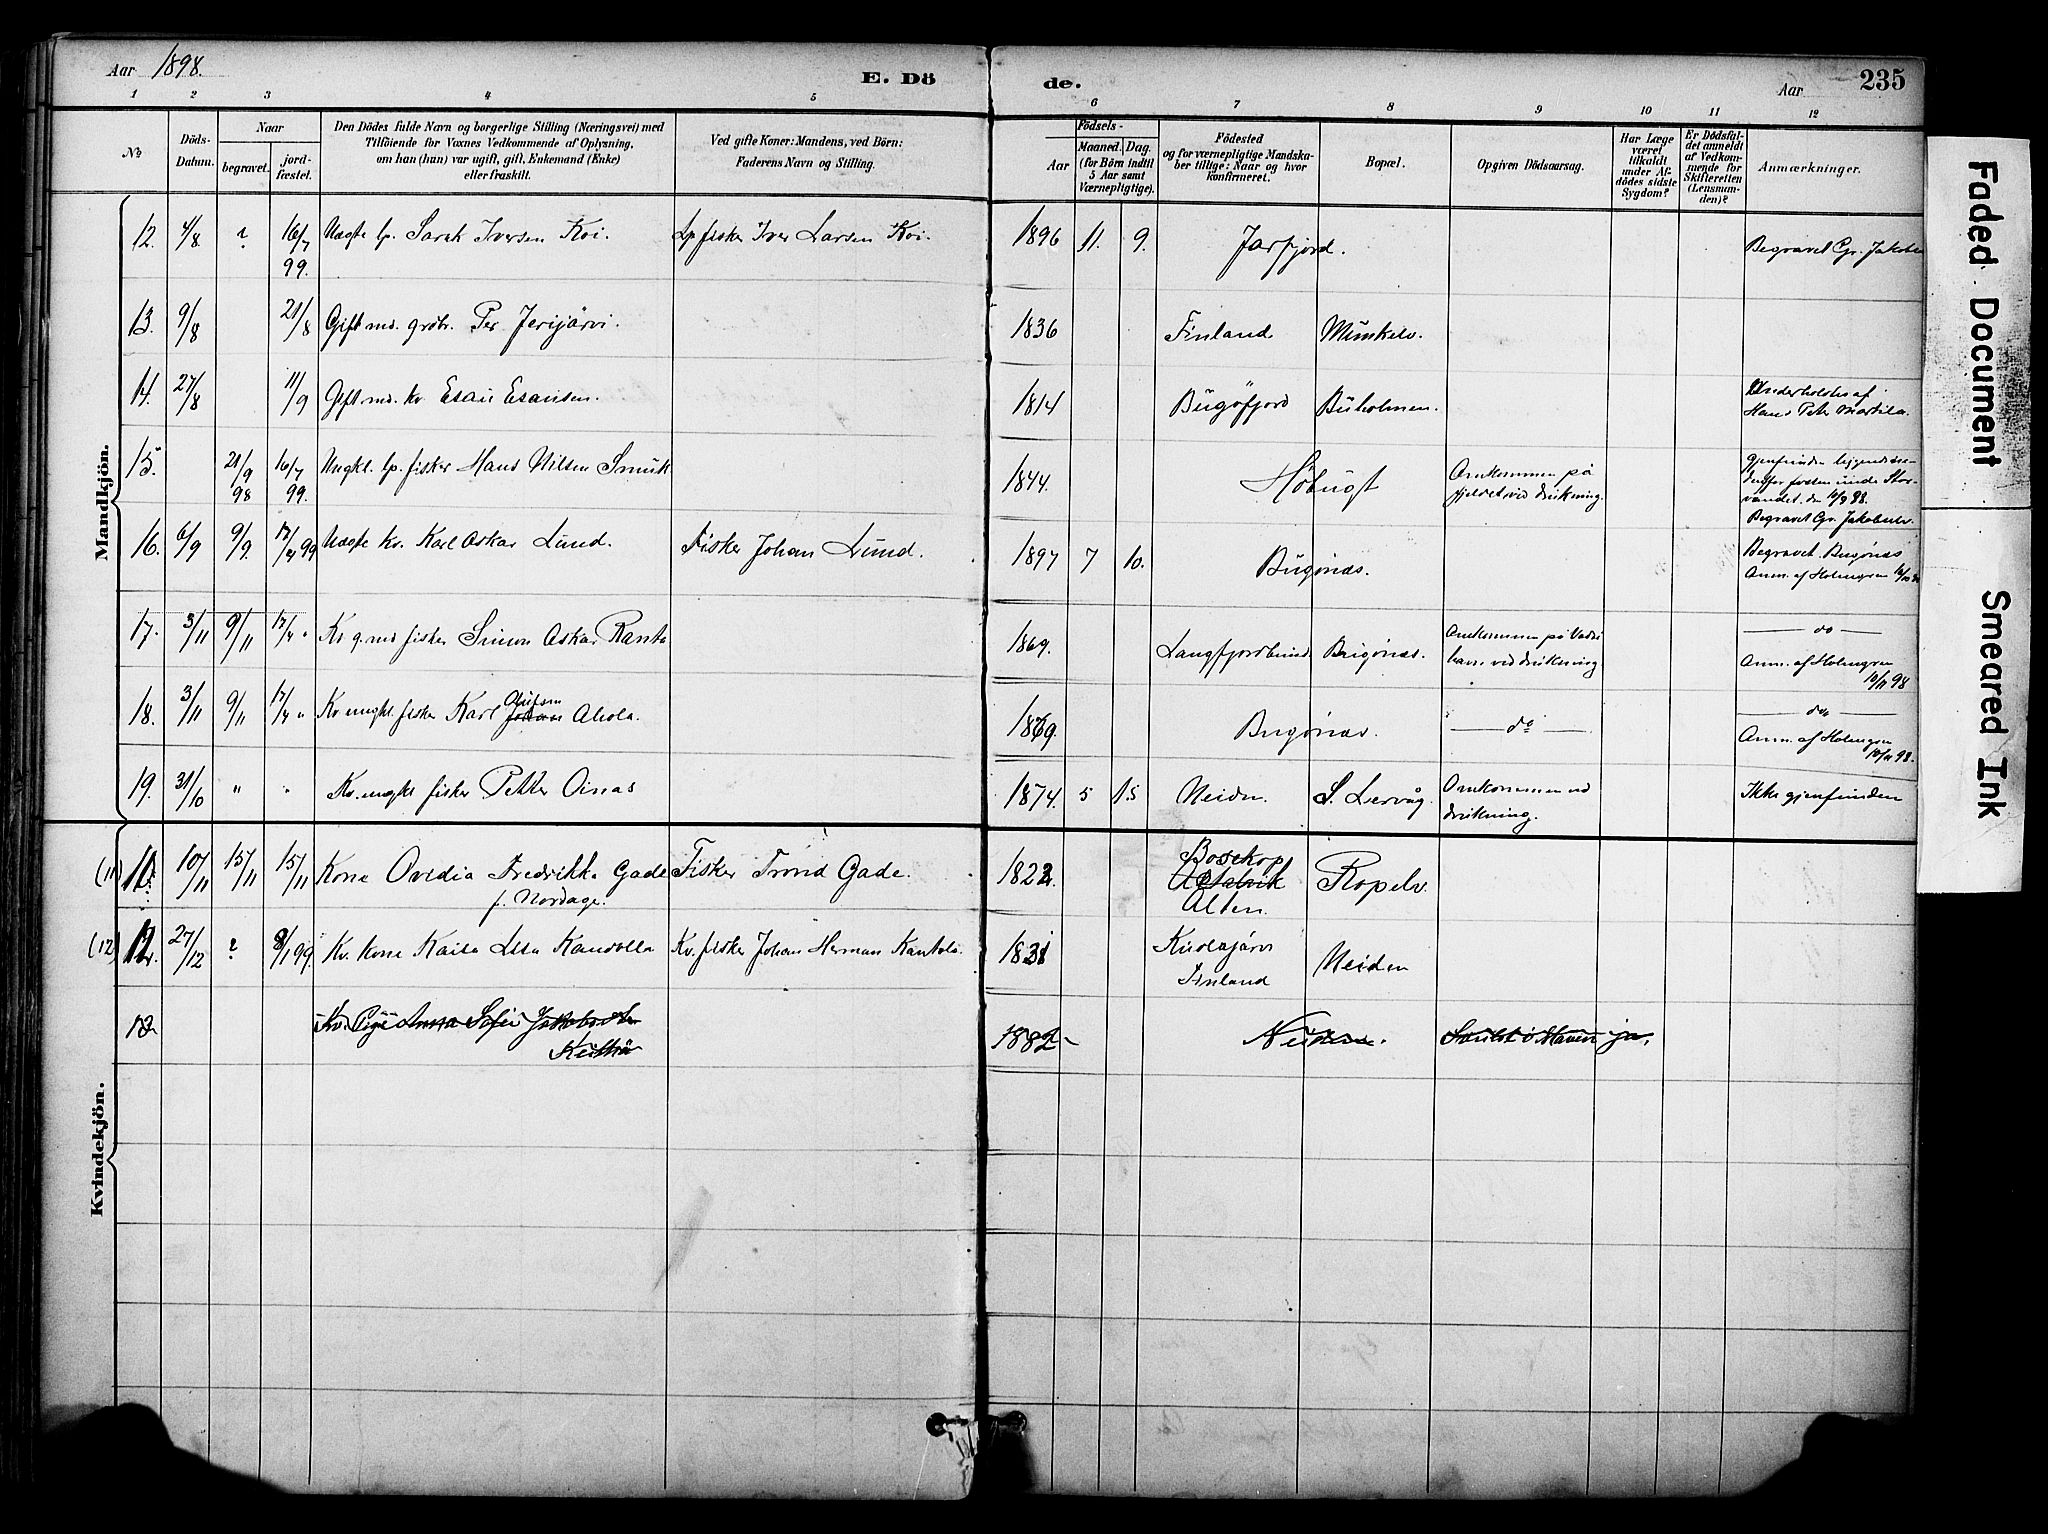 Aar 1898.
E. Dö
de.
Aar
235
1 2 3 4 5 6 7 8 9 10 11 12
No
Döds-
Datum.
Naar
begravet.
jord-
fæstet.
Den Dödes fulde Navn og borgerlige Stilling (Næringsvei) med
Tilföiende for Voxnes Vedkommende af Oplysning,
om han (hun) var ugift, gift, Enkemand (Enke)
eller fraskilt.
Ved gifte Koner: Mandens, ved Börn:
Faderens Navn og Stilling.
Födsels-
Aar
Maaned. Dag.
(for Börn indtil
5 Aar samt
Værnepligtige).
Födested
og for værnepligtige Mandska-
ber tillige: Naar og hvor
konfirmeret.
Bopæl.
Opgiven Dödsaarsag.
Har Læge
været
tilkaldt
under Af-
dödes sidste
Sygdom?
Er Dödsfal-
det anmeldt
af Vedkom-
mende for
Skifteretten
(Lensman-
den)?
Anmærkninger.
Mandkjön.
12. 4/8 ? 16/7 99. Uægte lp. Sarak Iversen Koi. Lp fisker Iver Larsen Koi. 1896 11. 9. Jarfjord. Begravet Gr. Jakobselv
13. 9/8 21/8 Gift md. grdbr. Per Jerijärvi. 1836 Finland Munkelv.
14. 27/8 11/9 Gift md. kv Esau Esausen. 1814 Bugöfjord Buholmen. Underholdtes af
Hans Peter Martila.
15. 21/9 98 16/7 99. Ungkl. lp. fisker Hans Nilsen Smuk 1844. Höbugt Omkommen på
fjeldet ved drukning.
vandet. den 16/9 98.
Begravet Gr. Jakobselv.
16. 6/9 9/9. 17/4 99 Uægte kv. Karl Oskar Lund. Fisker Johan Lund. 1897 7 10. Bugönæs. Begravet Bugönæs
Anm. af Holmgren
17. 3/11 9/11 17/4 " Kv g. md fisker Simon Oskar Ranta 1869. Langfjordbund. Bugönæs. Omkommen på
ved drukning
do
Anm. af Holmgren
10/11 98
18. 3/11 9/11 17/4 " Kv ungkl. fisker Karl Olufsen Johan Ahola. 1869. Bugönæs. do do
Anm. af Holmgren
10/11 98.
19. 31/10 " " Kv. ungkl fisker Petter Oinas 1874. 5 15 Neiden. S. Lervåg. Omkommen ved
drukning.
Ikke gjenfunden
Kvindekjön.
(11) 10/11 15/11 15/11 Kone Ovedia Fredrikke Gade
f. Nordage.
Fisker Trond Gade. 1822. Bosekop
Alten. Ropelv.
(12) 27/12 ? 8/1 99. Kv. kone Kaisa Kandolla Kv. fisker Johan Herman Kantola. 1831 Kuolajärvi
Finland Neiden
13 Kv. Pige Anna Sofie
1882 Neiden. ja.
Faded Document
Smeared Ink